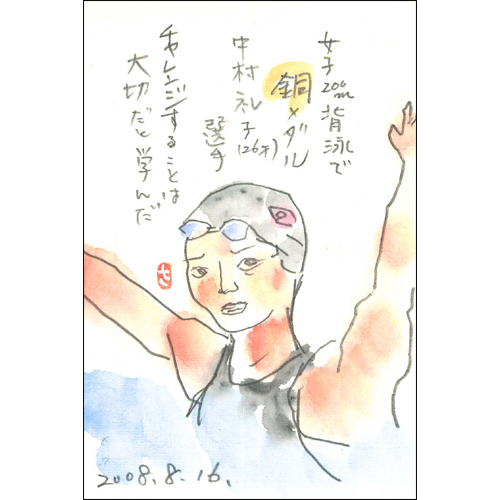 女子200m背泳で
銅メダル
中村礼子(26才)
選手
チャレンジすることは
大切だと学んだ
2008.8.16.